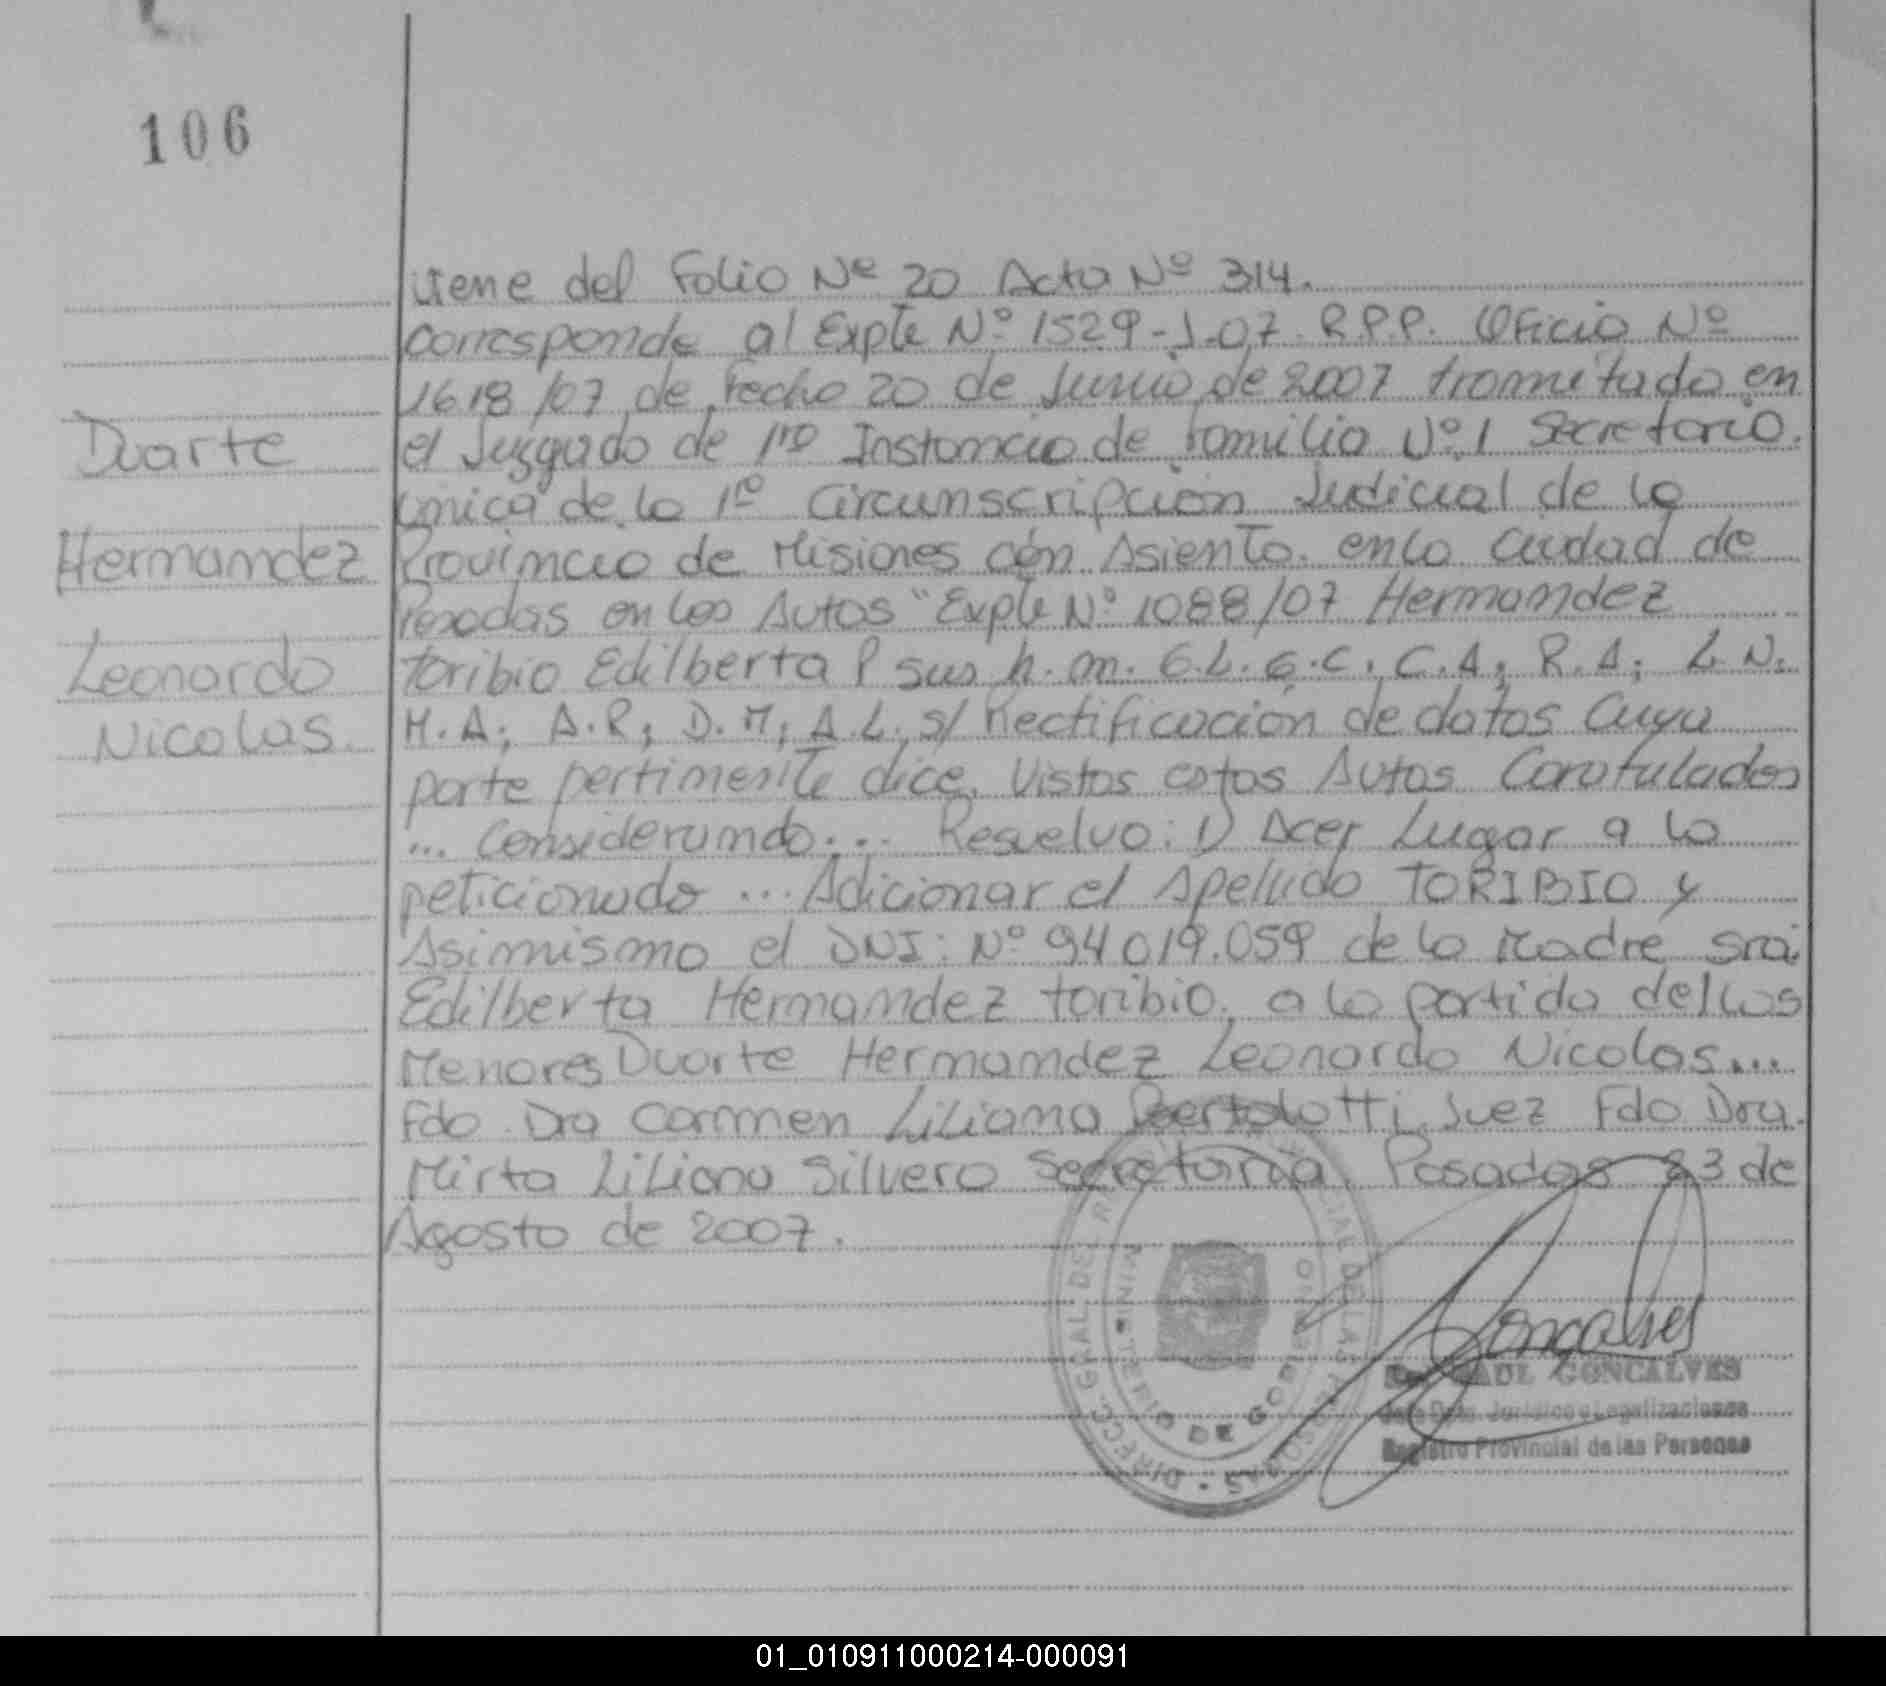 106
viene del Folio Nº 20 Acta Nº 314.
corresponde al Expte Nº 1529-J-07. R.P.P. Oficio Nº
1618/07 de Fecha 20 de Junio de 2007 tramitada en
Duarte
el Juzgado de 1ra Instancia de Familia Nº 1 Secretaria.
unica de la 1ª Circunscripción Judicial de la
Hernandez
Provincia de Misiones con Asiento. en la Ciudad de
Posadas en los Autos "Expte Nº 1088/07 Hernandez
Leonardo
toribio Edilberta P sus h. m. G.L. G.C. C.A; R.A; L.N.
Nicolas.
M.A; A.R; D.M; A.L. s/ Rectificación de datos Cuya
parte pertinente dice. Vistos estos Autos Caratulados
... Considerando... Resuelvo: 1) Acer Lugar a lo
peticionado ... Adicionar el Apellido TORIBIO y
Asimismo el DNI: Nº 94.019.059 de la Madre sra:
Edilberta Hernandez toribio. a la partida del los
Menores Duarte Hernandez Leonardo Nicolas...
Fdo. Dra Carmen Liliana Bertolotti Juez Fdo Dra.
Mirta Liliana Silvero Secretaria. Posadas 23 de
Agosto de 2007.
Goncalves
RAUL GONCALVES
Jefe Dpto. Jurídico y Legalizaciones
Registro Provincial de las Personas
MINISTERIO DE GOBIERNO
01_010911000214-000091